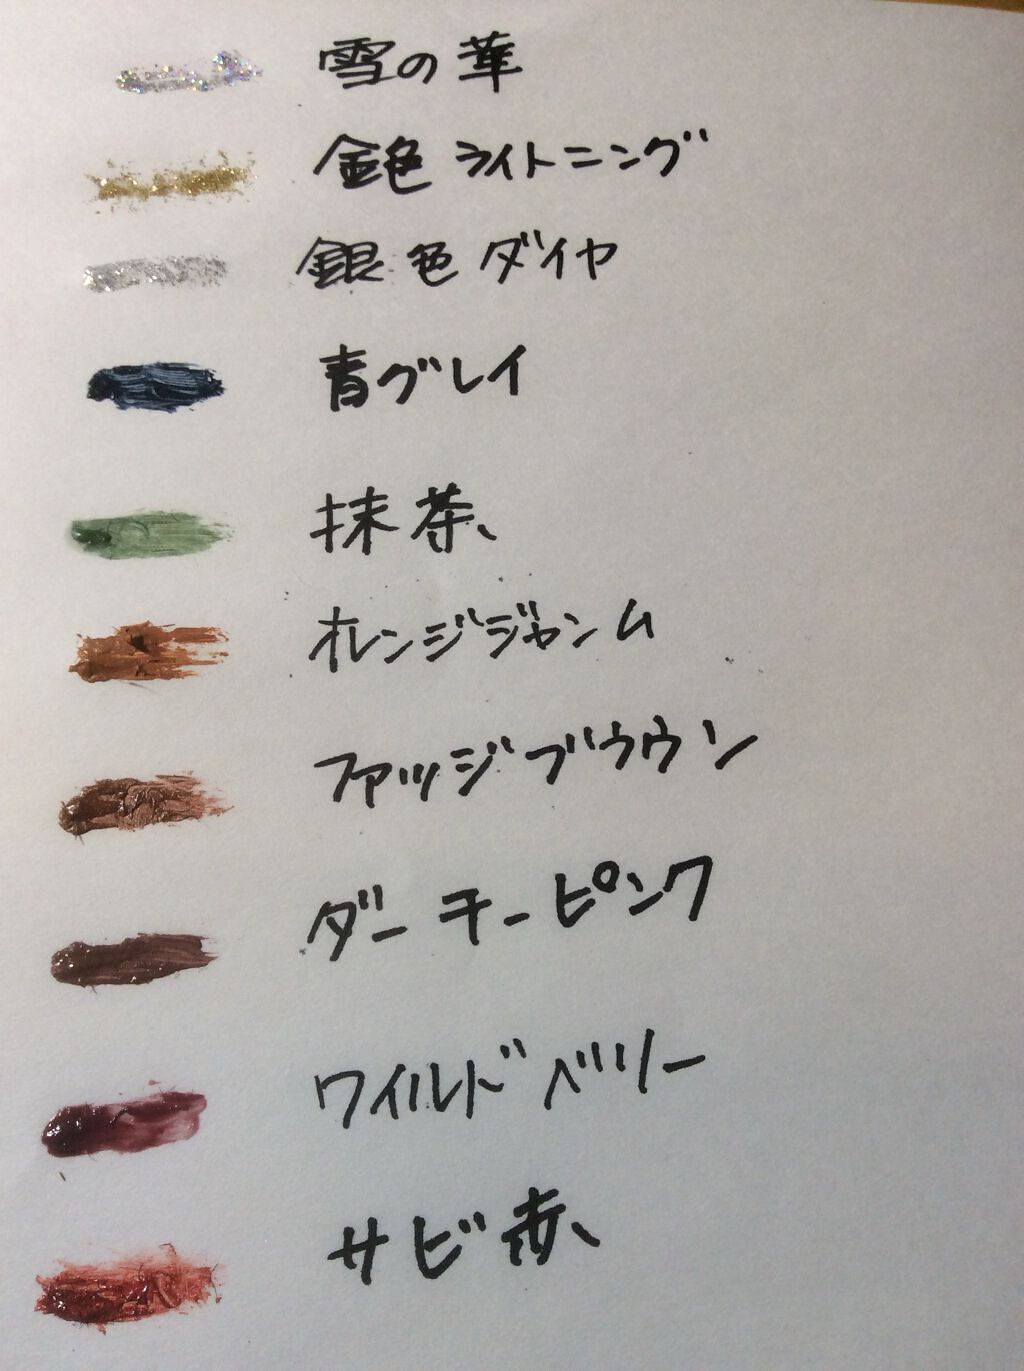 雪の華
金色ライトニング
銀色ダイヤ
青グレイ
抹茶
オレンジジャンム
ファッジブラウン
ダーチーピンク
ワイルドベリー
サビ赤